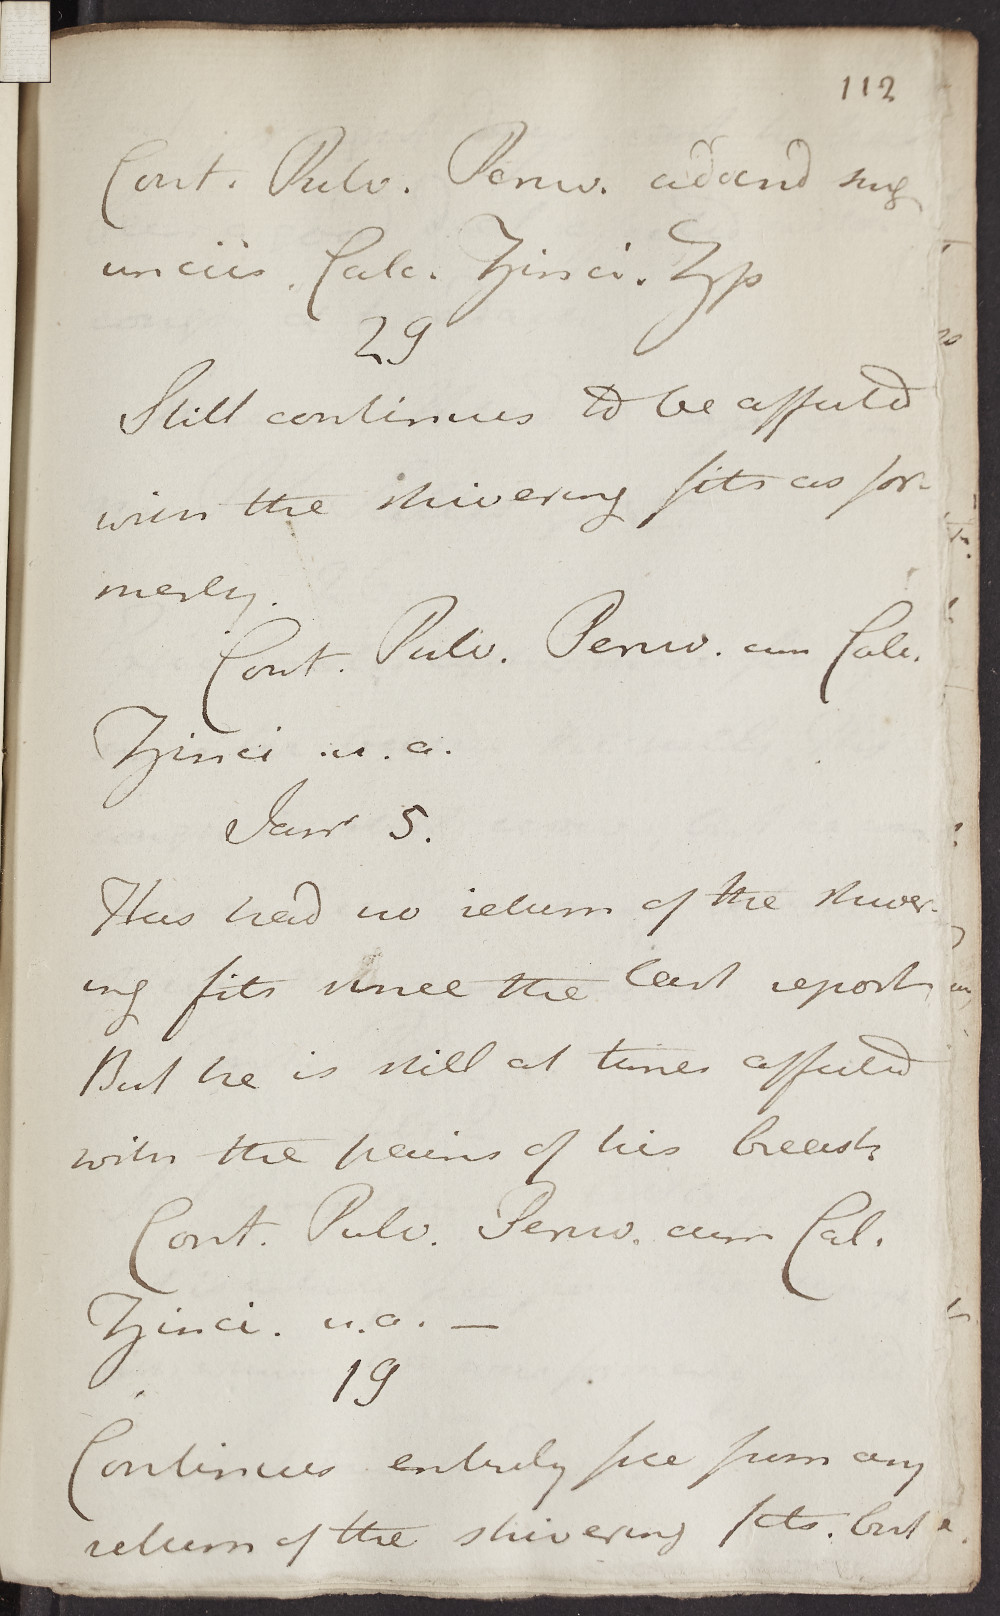 112
Cont. Pulv. Peruv. addand sing
unciis. Calc. Zinci. ʒß
29
Still continues to be affected
with the shivering fits as for-
merly.
Cont. Pulv. Peruv. cum Calc.
Zinci u.a.
Janr 5.
Has had no return of the shiver-
ing fits since the last report
But he is still at times affected
with the pains of his breast.
Cont. Pulv. Peruv. cum Cal.
Zinci. u.a. —
19
Continues entirely free from any
return of the shivering fits. but